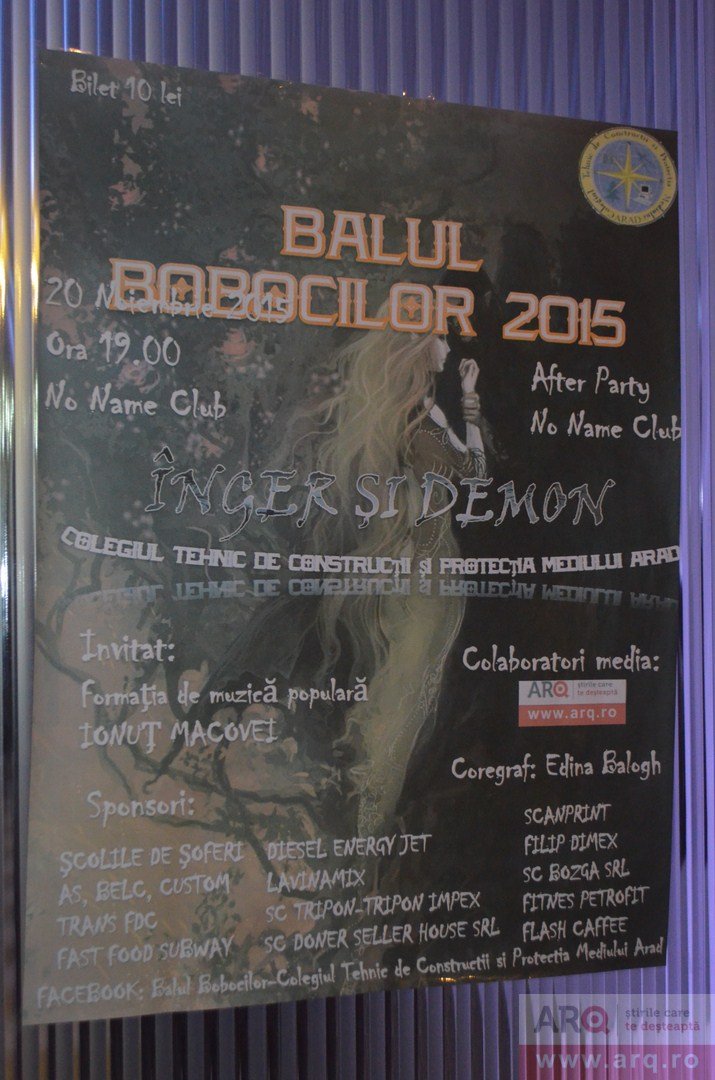 Bilet 10 lei
Tehnic de Constructii si Protectia Mediului
ARAD
BALUL
BOBOCILOR 2015
20 Noiembrie 2015
Ora 19.00
No Name Club
After Party
No Name Club
ÎNGER ȘI DEMON
COLEGIUL TEHNIC DE CONSTRUCȚII ȘI PROTECȚIA MEDIULUI ARAD
Invitat:
Formația de muzică populară
IONUȚ MACOVEI
Colaboratori media:
ARQ știrile care
te deșteaptă
www.arq.ro
Coregraf: Edina Balogh
Sponsori:
ȘCOLILE DE ȘOFERI
AS, BELC, CUSTOM
TRANS FDC
FAST FOOD SUBWAY
DIESEL ENERGY JET
LAVINAMIX
SC TRIPON-TRIPON IMPEX
SC DONER SELLER HOUSE SRL
SCANPRINT
FILIP DIMEX
SC BOZGA SRL
FITNES PETROFIT
FLASH CAFFEE
FACEBOOK: Balul Bobocilor-Colegiul Tehnic de Constructii si Protectia Mediului Arad
ARQ știrile care
te deșteaptă
www.arq.ro